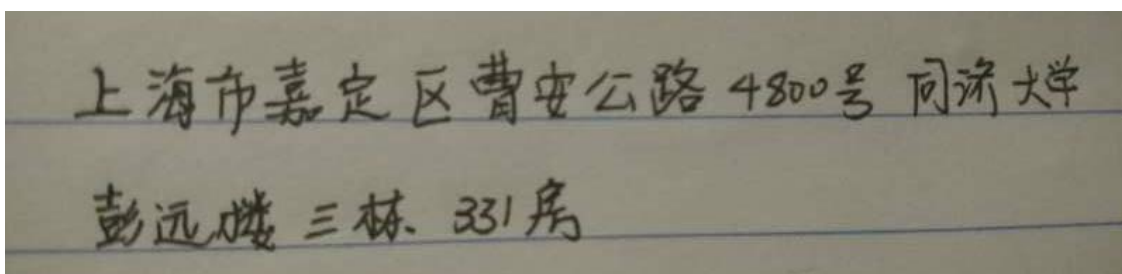 上海市嘉定区曹安公路4800号 同济大学
彭远楼三栋、331房